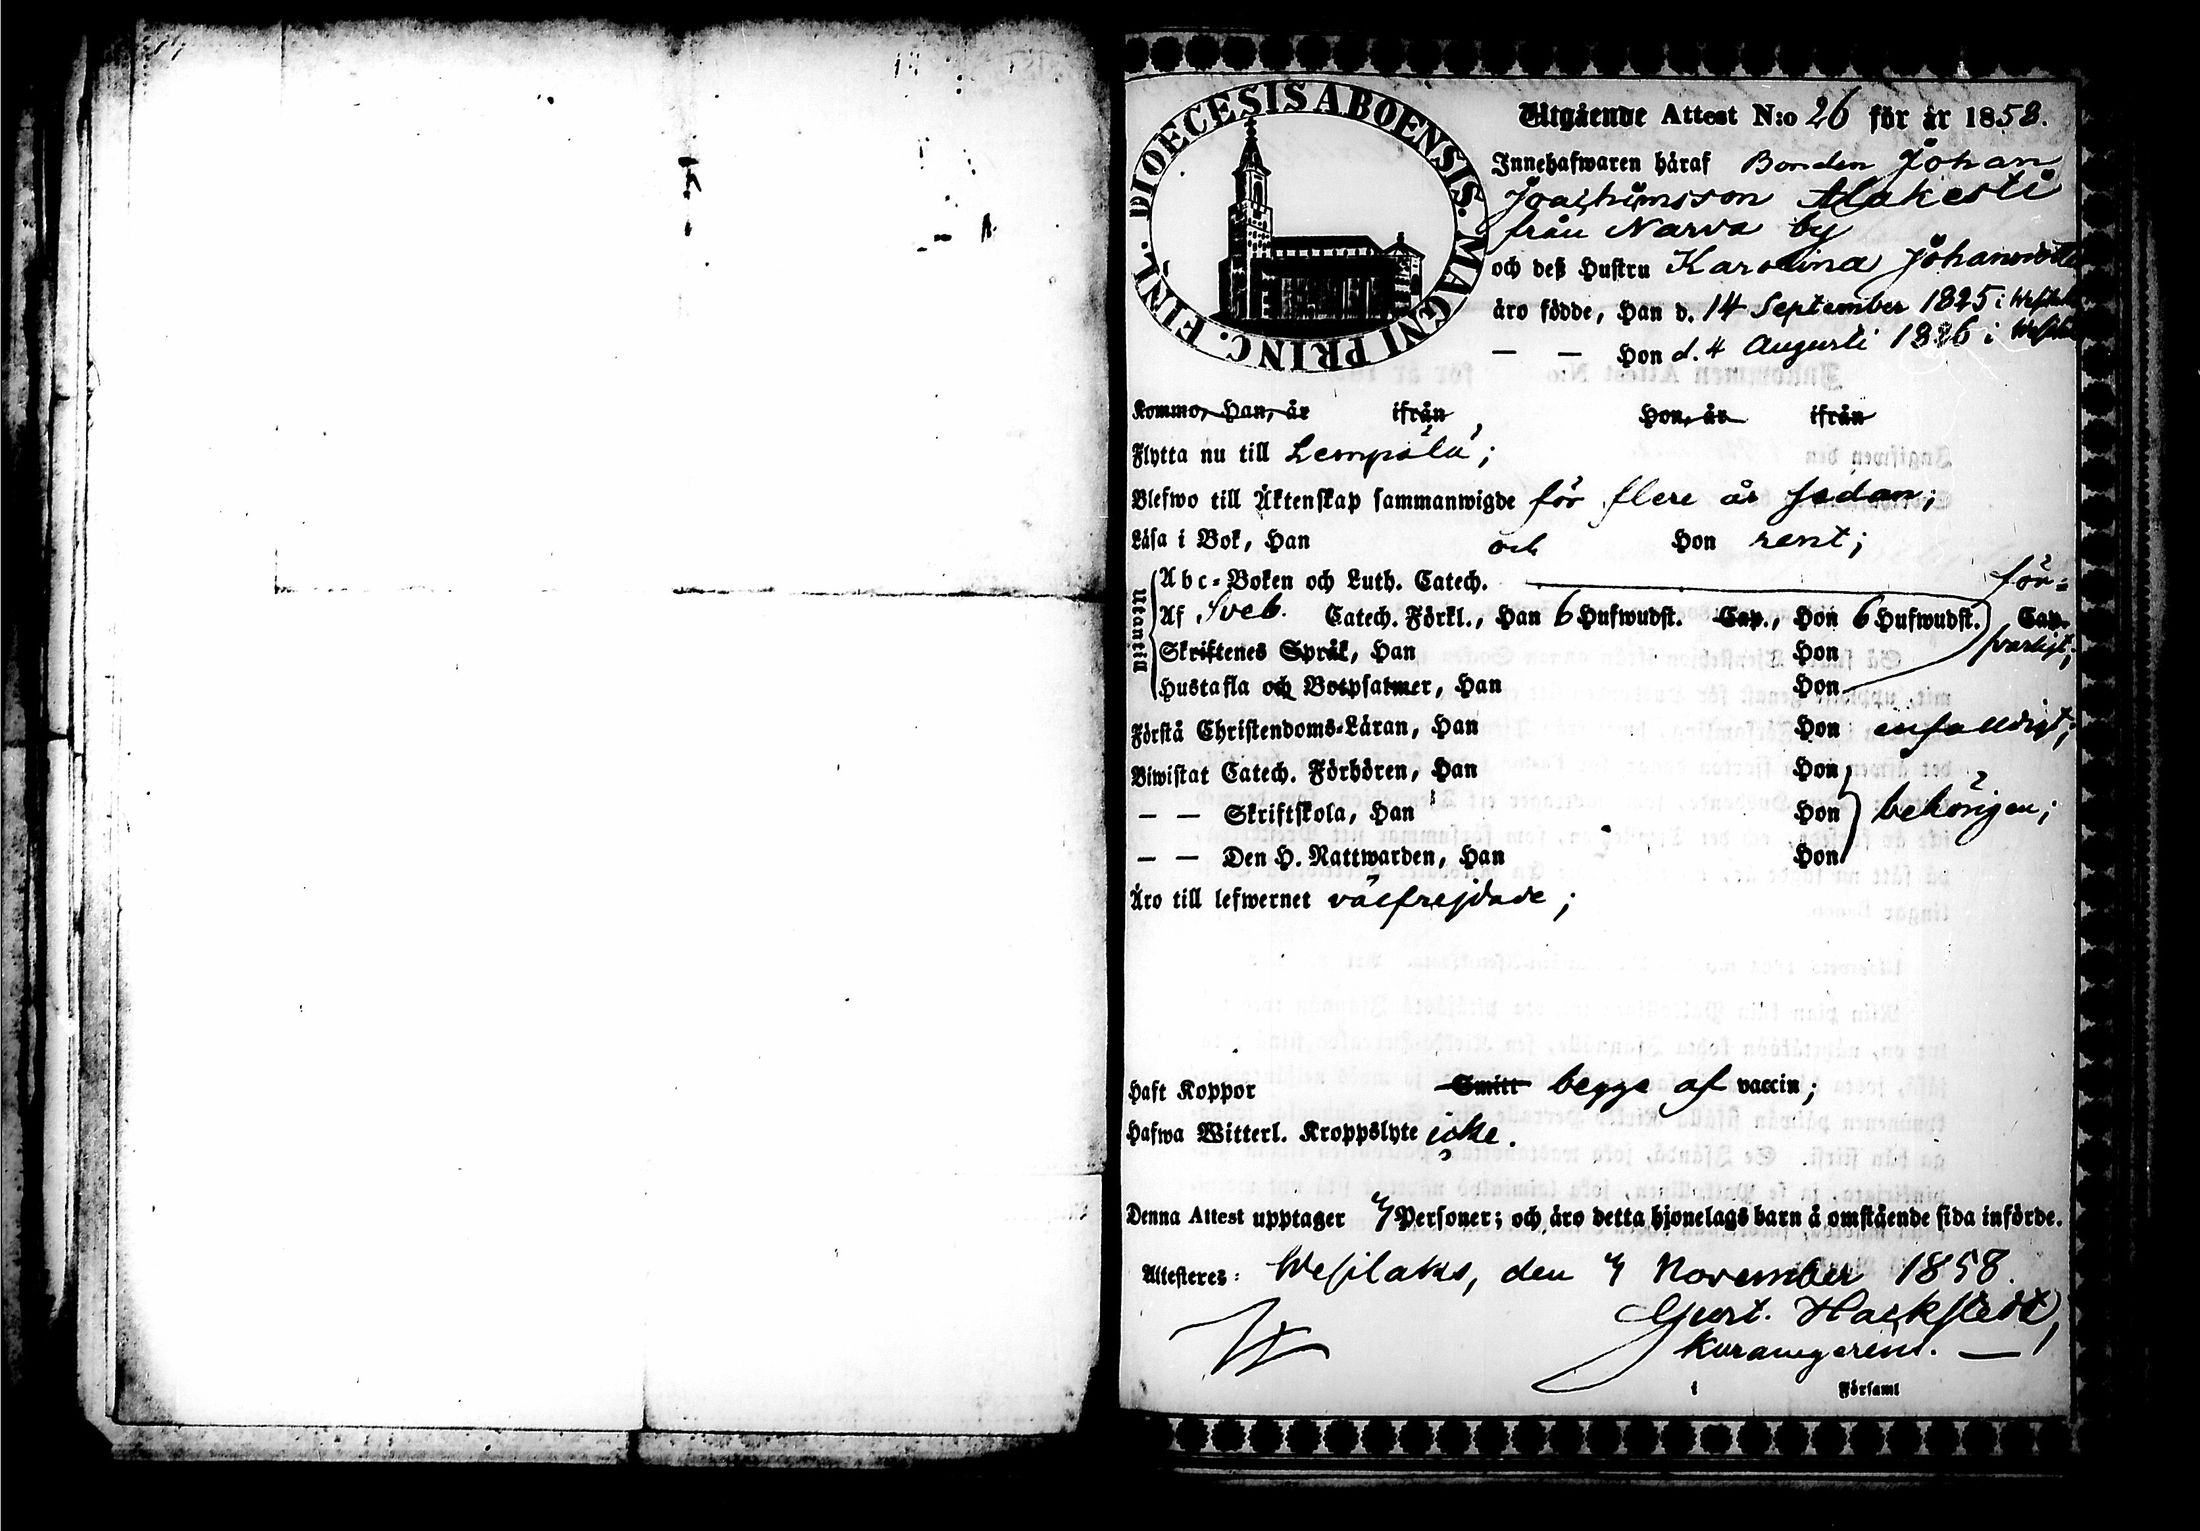 DIOECESIS ABOENSIS. MAGNI PRINC. FINL.
Utgående Attest N:o 26 för år 1858.
Innehafwaren häraf Bonden Johan
Joachimsson Alakesti
från Narva by
och deß Hustru Karolina Johansdotter
äro födde, Han d. 14 September 1825 i Wesilaks
— — Hon d. 4 Augusti 1826 i Wesilaks
Kommo, Han, år ifrån Hon, år ifrån
Flytta nu till Lempälä;
Blefwo till Äktenskap sammanwigde för flere år sedan;
Läsa i Bok, Han och Hon rent;
Utantill
Abc-Boken och Luth. Catech. för-
Af Sveb. Catech. Förkl., Han 6 Hufwudst. Cap., Hon 6 Hufwudst. Cap.
Skriftenes Språk, Han Hon svarligt;
Hustafla och Botpsalmer, Han Hon
Förstå Christendoms-Läran, Han Hon enfalldigt;
Biwistat Catech. Förhören, Han Hon
— — Skriftskola, Han Hon behörigen;
— — Den H. Nattwarden, Han Hon
Äro till lefwernet välfrejdade;
Haft Koppor Smitt begge af vaccin;
Hafwa Witterl. Kroppslyte icke.
Denna Attest upptager 7 Personer; och äro detta hjonelags barn å omstående sida införde.
Attesteres: Wesilaks, den 7 November 1858.
Gust. Hackstedt,
i Församl